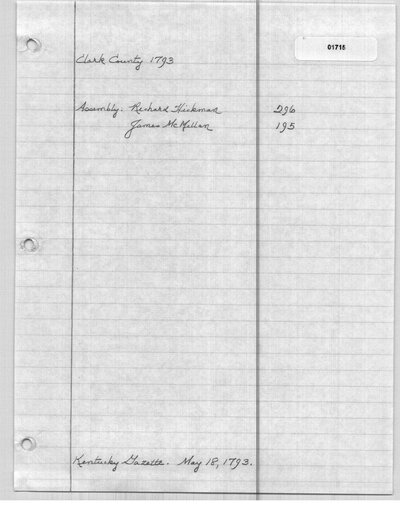 01715
Clark County 1793
Assembly: Richard Hickman 296
James McMillan 195
Kentucky Gazette. May 18, 1793.